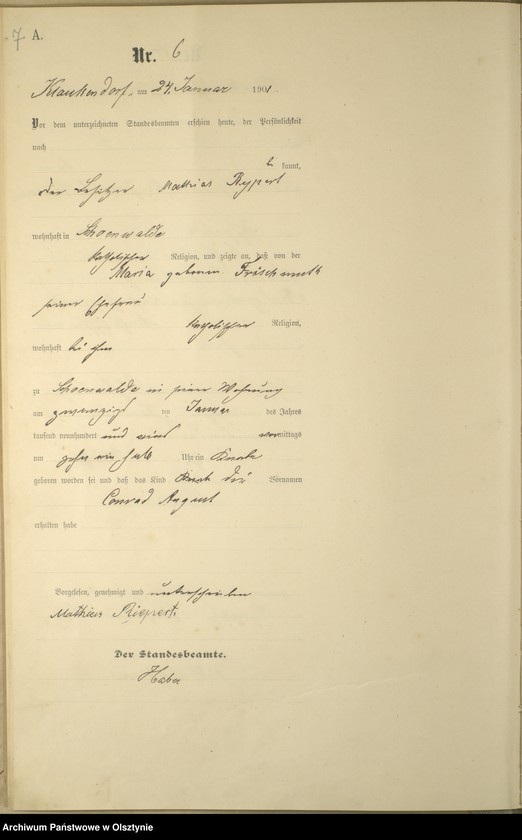 7 A.
Nr. 6
Klaukendorf, am 24. Januar 1901.
Vor dem unterzeichneten Standesbeamten erschien heute, der Persönlichkeit
nach
be kannt,
der Besitzer Mathias Ryppert
wohnhaft in Schoenwalde
katholischer Religion, und zeigte an, daß von der
Maria geborenen Frischmuth
seiner Ehefrau
katholischer Religion,
wohnhaft bei ihm
zu Schoenwalde in seiner Wohnung
am zwanzigsten Januar des Jahres
tausend neunhundert und eins vormittags
um zehn ein halb Uhr ein Knabe
geboren worden sei und daß das Kind Knabe die Vornamen
Conrad August
erhalten habe
Vorgelesen, genehmigt und unterschrieben
Mathias Riepert.
Der Standesbeamte.
Archiwum Państwowe w Olsztynie